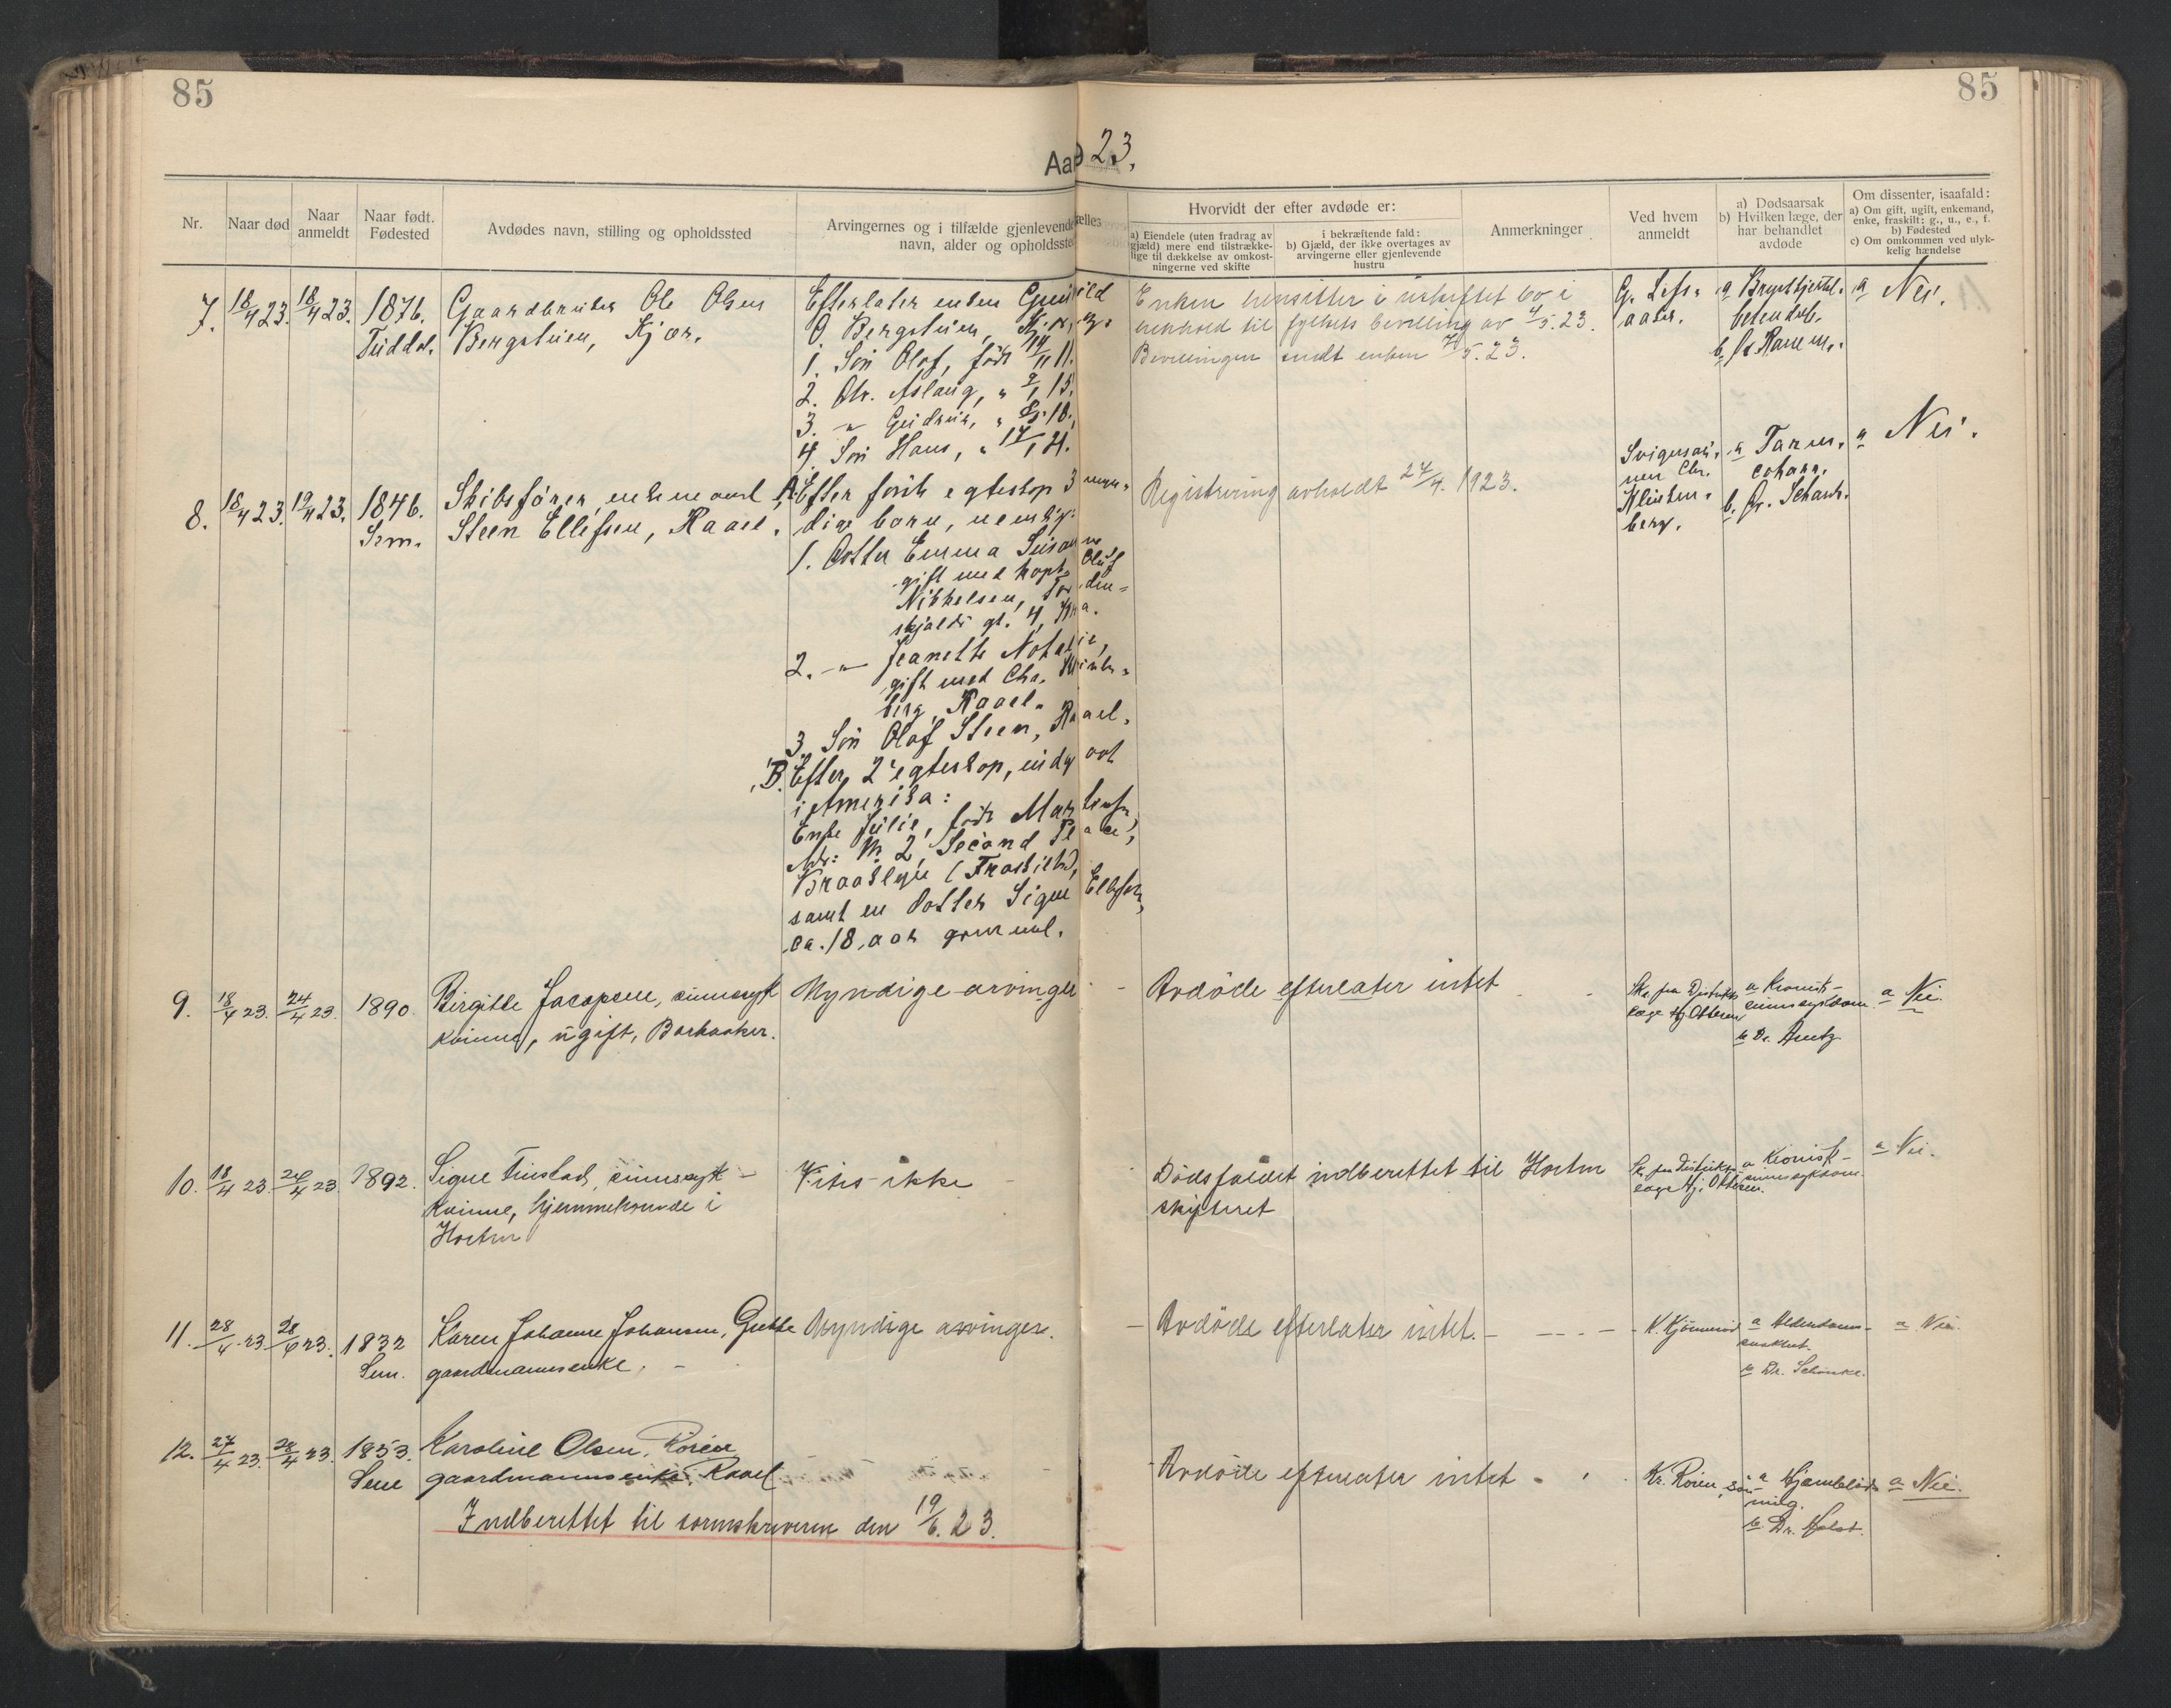 85
85
Aa 23.
Nr.
Naar død
Naar anmeldt
Naar født. Fødested
Avdødes navn, stilling og opholdssted
Arvingernes og i tilfælde gjenlevende
navn, alder og opholdssted
Hvorvidt der efter avdøde er:
a) Eiendele (uten fradrag av gjæld) mere end tilstrækkelige til dækkelse av omkostningerne ved skifte
i bekræftende fald:
b) Gjæld, der ikke overtages av arvingerne eller gjenlevende hustru
Anmerkninger
Ved hvem anmeldt
a) Dødsaarsak
b) Hvilken læge, der har behandlet avdøde
Om dissenter, isaafald:
a) Om gift, ugift, enkemand, enke, fraskilt: g., u., e., f.
b) Fødested
c) Om omkommen ved ulykkelig hændelse
7. 18/4 23. 18/4 23. 1876. Gaardbruker Ole Olsen
Tuddal. Bergstuen, Kjær.
Efterlater enken Gunild
O. Bergstuen, Kjær, og
1. Søn Olof, født 14/11 11.
2. Dtr. Aslaug, " 9/1 15.
3. " Gudrun, " 18.
4. Søn Hans, " 17/1 21.
Enken hensitter i uskiftet bo i
henhold til fylkets bevilling av 4/5. 23.
Bevillingen sendt enken 7/5. 23.
a Brysthjertebetendelse.
a Nei.
8. 18/4 23. 19/4 23. 1846. Skibsfører, enkemand
Sem. Steen Ellefsen, Raael.
A. Efter første egteskap 3 myndige
børn, nemlig:
1. Datter Emma Susanne
gift med kapt. Oluf
Nikkelsen, Tordenskjolds
gt. 4, Kra.
2. " Jeanette Nathalie,
gift med Chr. Kleinberg,
Raael.
3. Søn Olaf Steen, Raael.
B. Efter 2 egteskap, indgaat
i Amerika:
Enke Julie, født Martinsen,
Adr: No 2, Second Place,
Brooklyn (Fraskilt),
samt en datter Signe Ellefsen,
ca. 18 aar gammel.
Registrering avholdt 24/4. 1923.
Svigersønnen Chr.
Kleinberg.
a Tarmcohara.
b. Dr. Schank.
a Nei.
9. 18/4 23. 24/4 23. 1890. Birgitte Jacopsen, sinnssyk
kvinne, ugift, Barkaaker.
Myndige arvinger
Avdøde efterlater intet
Sk. fra Distriktslæge Hj. Ottesen
a Kronisk sinnssygdom
b Dr. Arntz
a Nei.
10. 18/4 23. 24/4 23. 1892. Signe Finstad, sinnssyk
kvinne, hjemmehørende i
Horten
Vites ikke
Dødsfaldet indberettet til Horten
skifteret
Sk. fra Distriktslæge Hj. Ottesen.
a Kronisk sinnssykdom.
a Nei.
11. 28/4 23. 28/6 23. 1832 Karen Johanne Johansen, Gutte
Sem. gaardmannsenke.
Myndige arvinger.
Avdøde efterlater intet.
a Alderdomssvakhet.
b Dr. Schinke.
a Nei.
12. 27/4 23. 28/4 23. 1853. Karoline Olsen Roren
Sem gaardmannsenke, Raael
Avdøde efterlater intet
Kr. Roren, søn
a Hjerneblødning.
b Dr. Holst.
a Nei.
Indberettet til sorenskriveren den 19/6. 23.